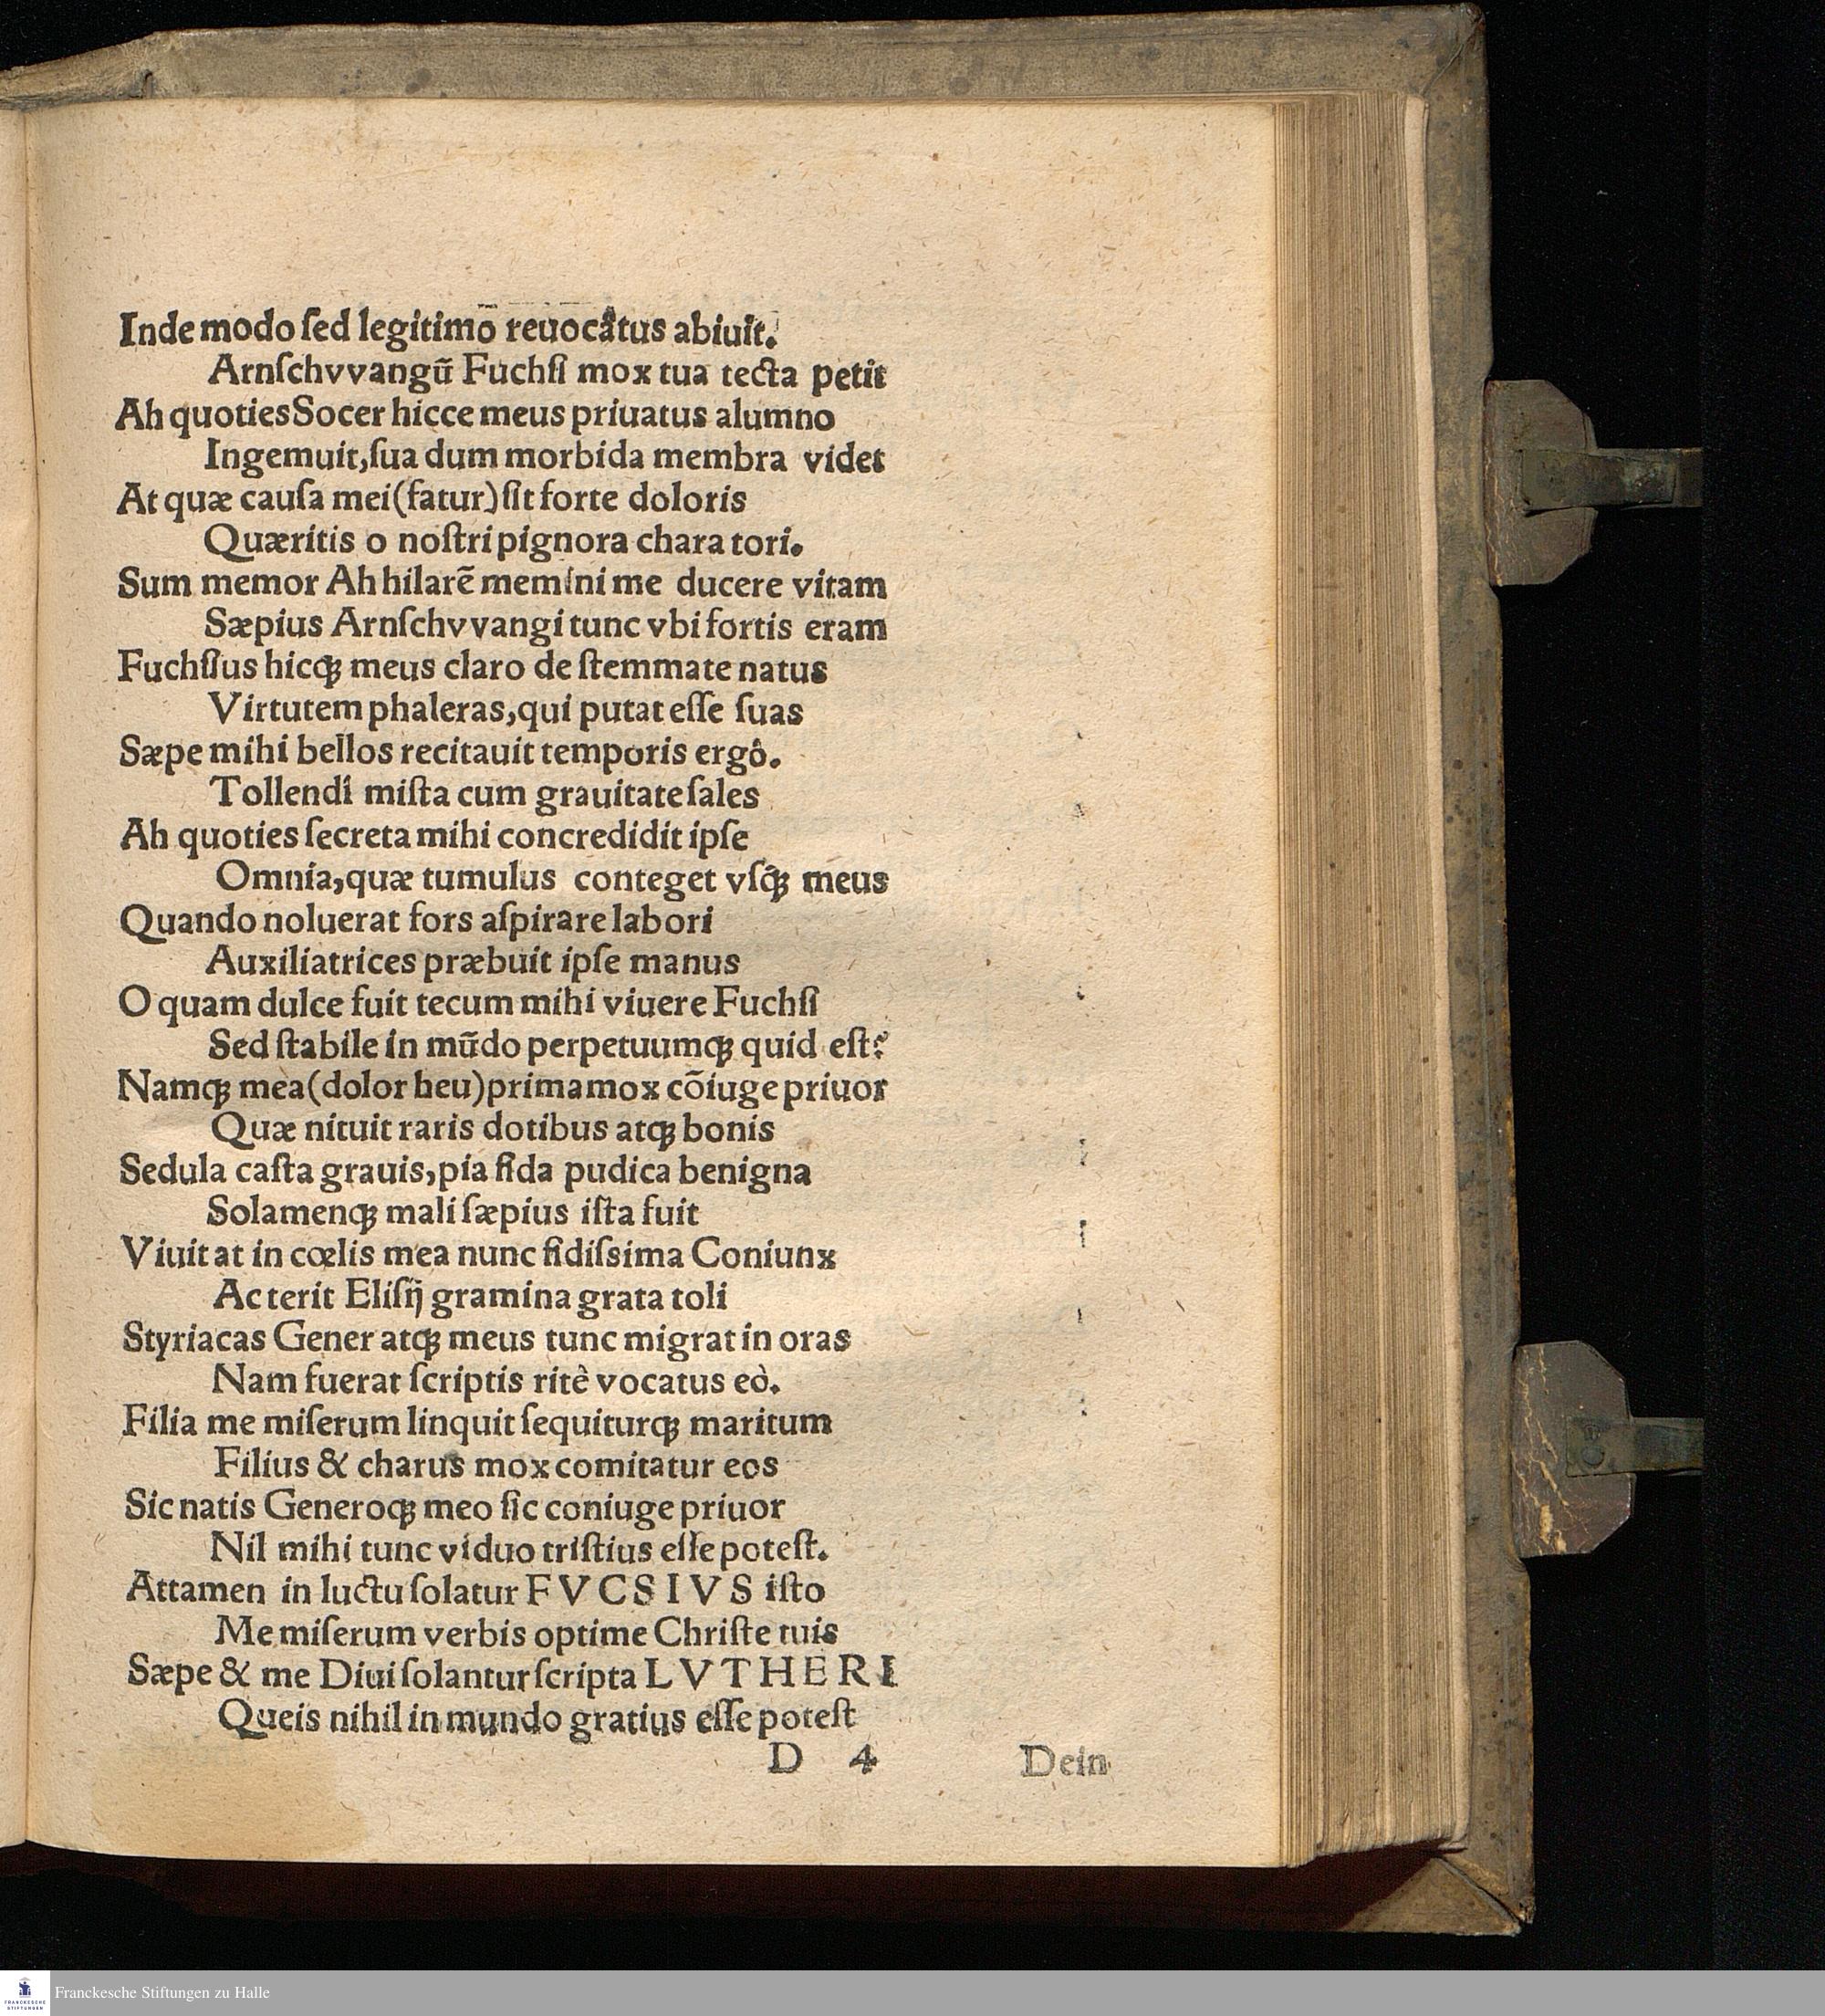 Inde modo ſed legitimo reuocâtus abiuit.
Arnſchvvangū Fuchſi mox tua tecta petit
Ah quoties Socer hicce meus priuatus alumno
Ingemuit, ſua dum morbida membra videt
At quæ cauſa mei (fatur) ſit forte doloris
Quæritis o noſtri pignora chara tori.
Sum memor Ah hilarē memini me ducere vitam
Sæpius Arnſchvvangi tunc vbi fortis eram
Fuchſius hicq́ꝫ meus claro de ſtemmate natus
Virtutem phaleras, qui putat eſſe ſuas
Sæpe mihi bellos recitauit temporis ergô.
Tollendi miſta cum grauitate ſales
Ah quoties ſecreta mihi concredidit ipſe
Omnia, quæ tumulus conteget vſq́ꝫ meus
Quando noluerat fors aſpirare labori
Auxiliatrices præbuit ipſe manus
O quam dulce fuit tecum mihi viuere Fuchſi
Sed ſtabile in mūdo perpetuumqꝫ quid eſt?
Namqꝫ mea (dolor heu) prima mox cōiuge priuor
Quæ nituit raris dotibus atqꝫ bonis
Sedula caſta grauis, pia fida pudica benigna
Solamenqꝫ mali ſæpius iſta fuit
Viuit at in cœlis mea nunc fidiſsima Coniunx
Ac terit Eliſij gramina grata toli
Styriacas Gener atqꝫ meus tunc migrat in oras
Nam fuerat ſcriptis ritè vocatus eò.
Filia me miſerum linquit ſequiturqꝫ maritum
Filius & charus mox comitatur eos
Sic natis Generoqꝫ meo ſic coniuge priuor
Nil mihi tunc viduo triſtius eſſe poteſt.
Attamen in luctu ſolatur FVCSIVS iſto
Me miſerum verbis optime Chriſte tuis
Sæpe & me Diui ſolantur ſcripta LVTHERI
Queis nihil in mundo gratius eſſe poteſt
D 4 Dein
Franckesche Stiftungen zu Halle
FRANCKESCHE
STIFTUNGEN